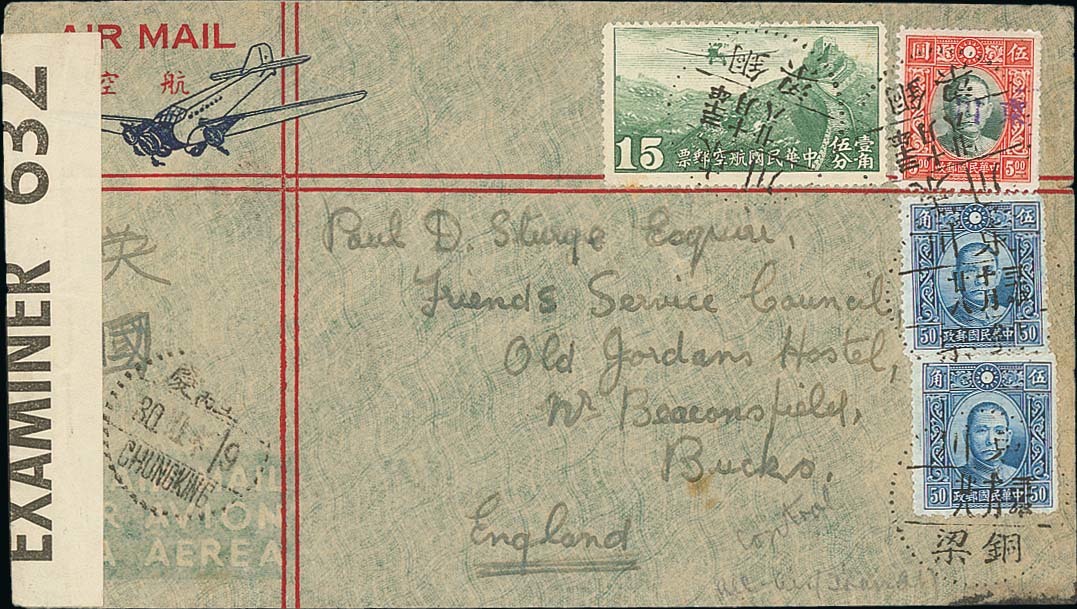 AIR MAIL
空 航
EXAMINER 632
15
票郵空航國民華中
壹角
伍分
圓
伍
5.00
5.00
票郵國民華中
角
伍
50
政郵國民華中
50
角
伍
50
政郵國民華中
50
Paul D. Sturge Esquire,
Friends Service Council
Old Jordans Hostel,
Nr Beaconsfield,
Bucks,
England
英
國
慶
30
19
CHUNGKING
AIR MAIL
PAR AVION
VIA AEREA
川
梁 銅